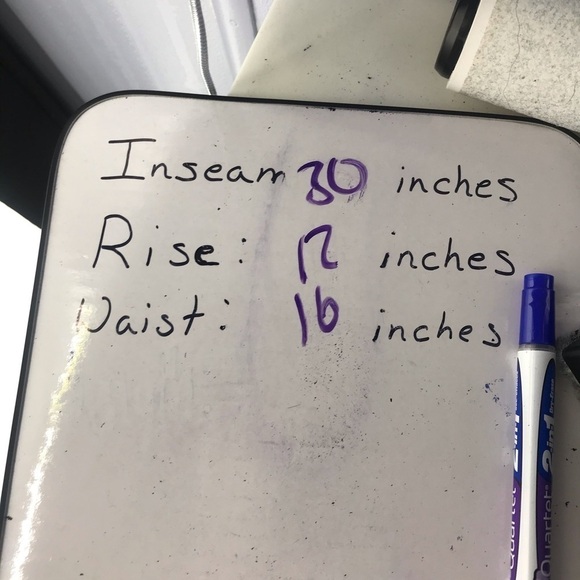 Inseam 30 inches
Rise: 12 inches
Waist: 16 inches
Quartet 2in1
Quartet 2in1